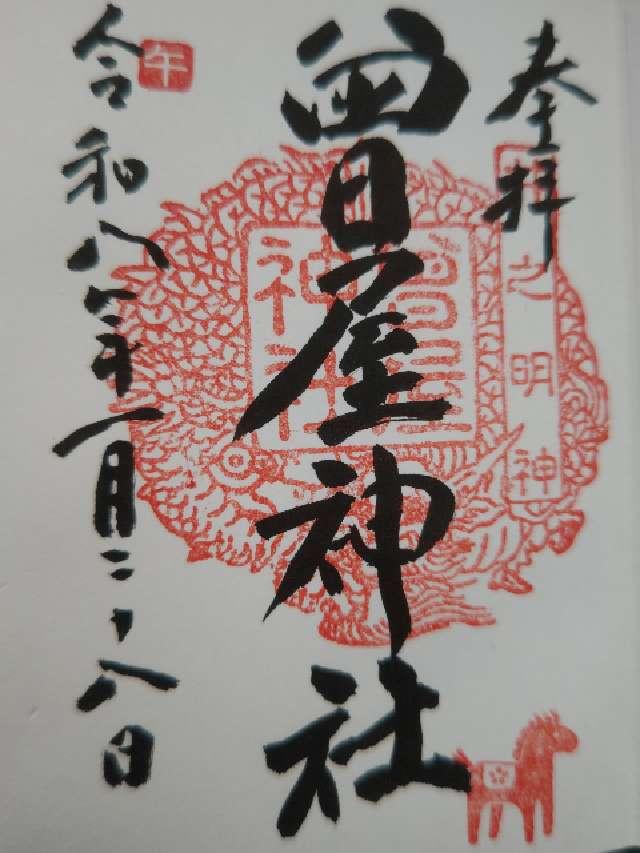 奉拝
之明神
曽屋神社
曽屋神社
午
令和八年一月二十八日